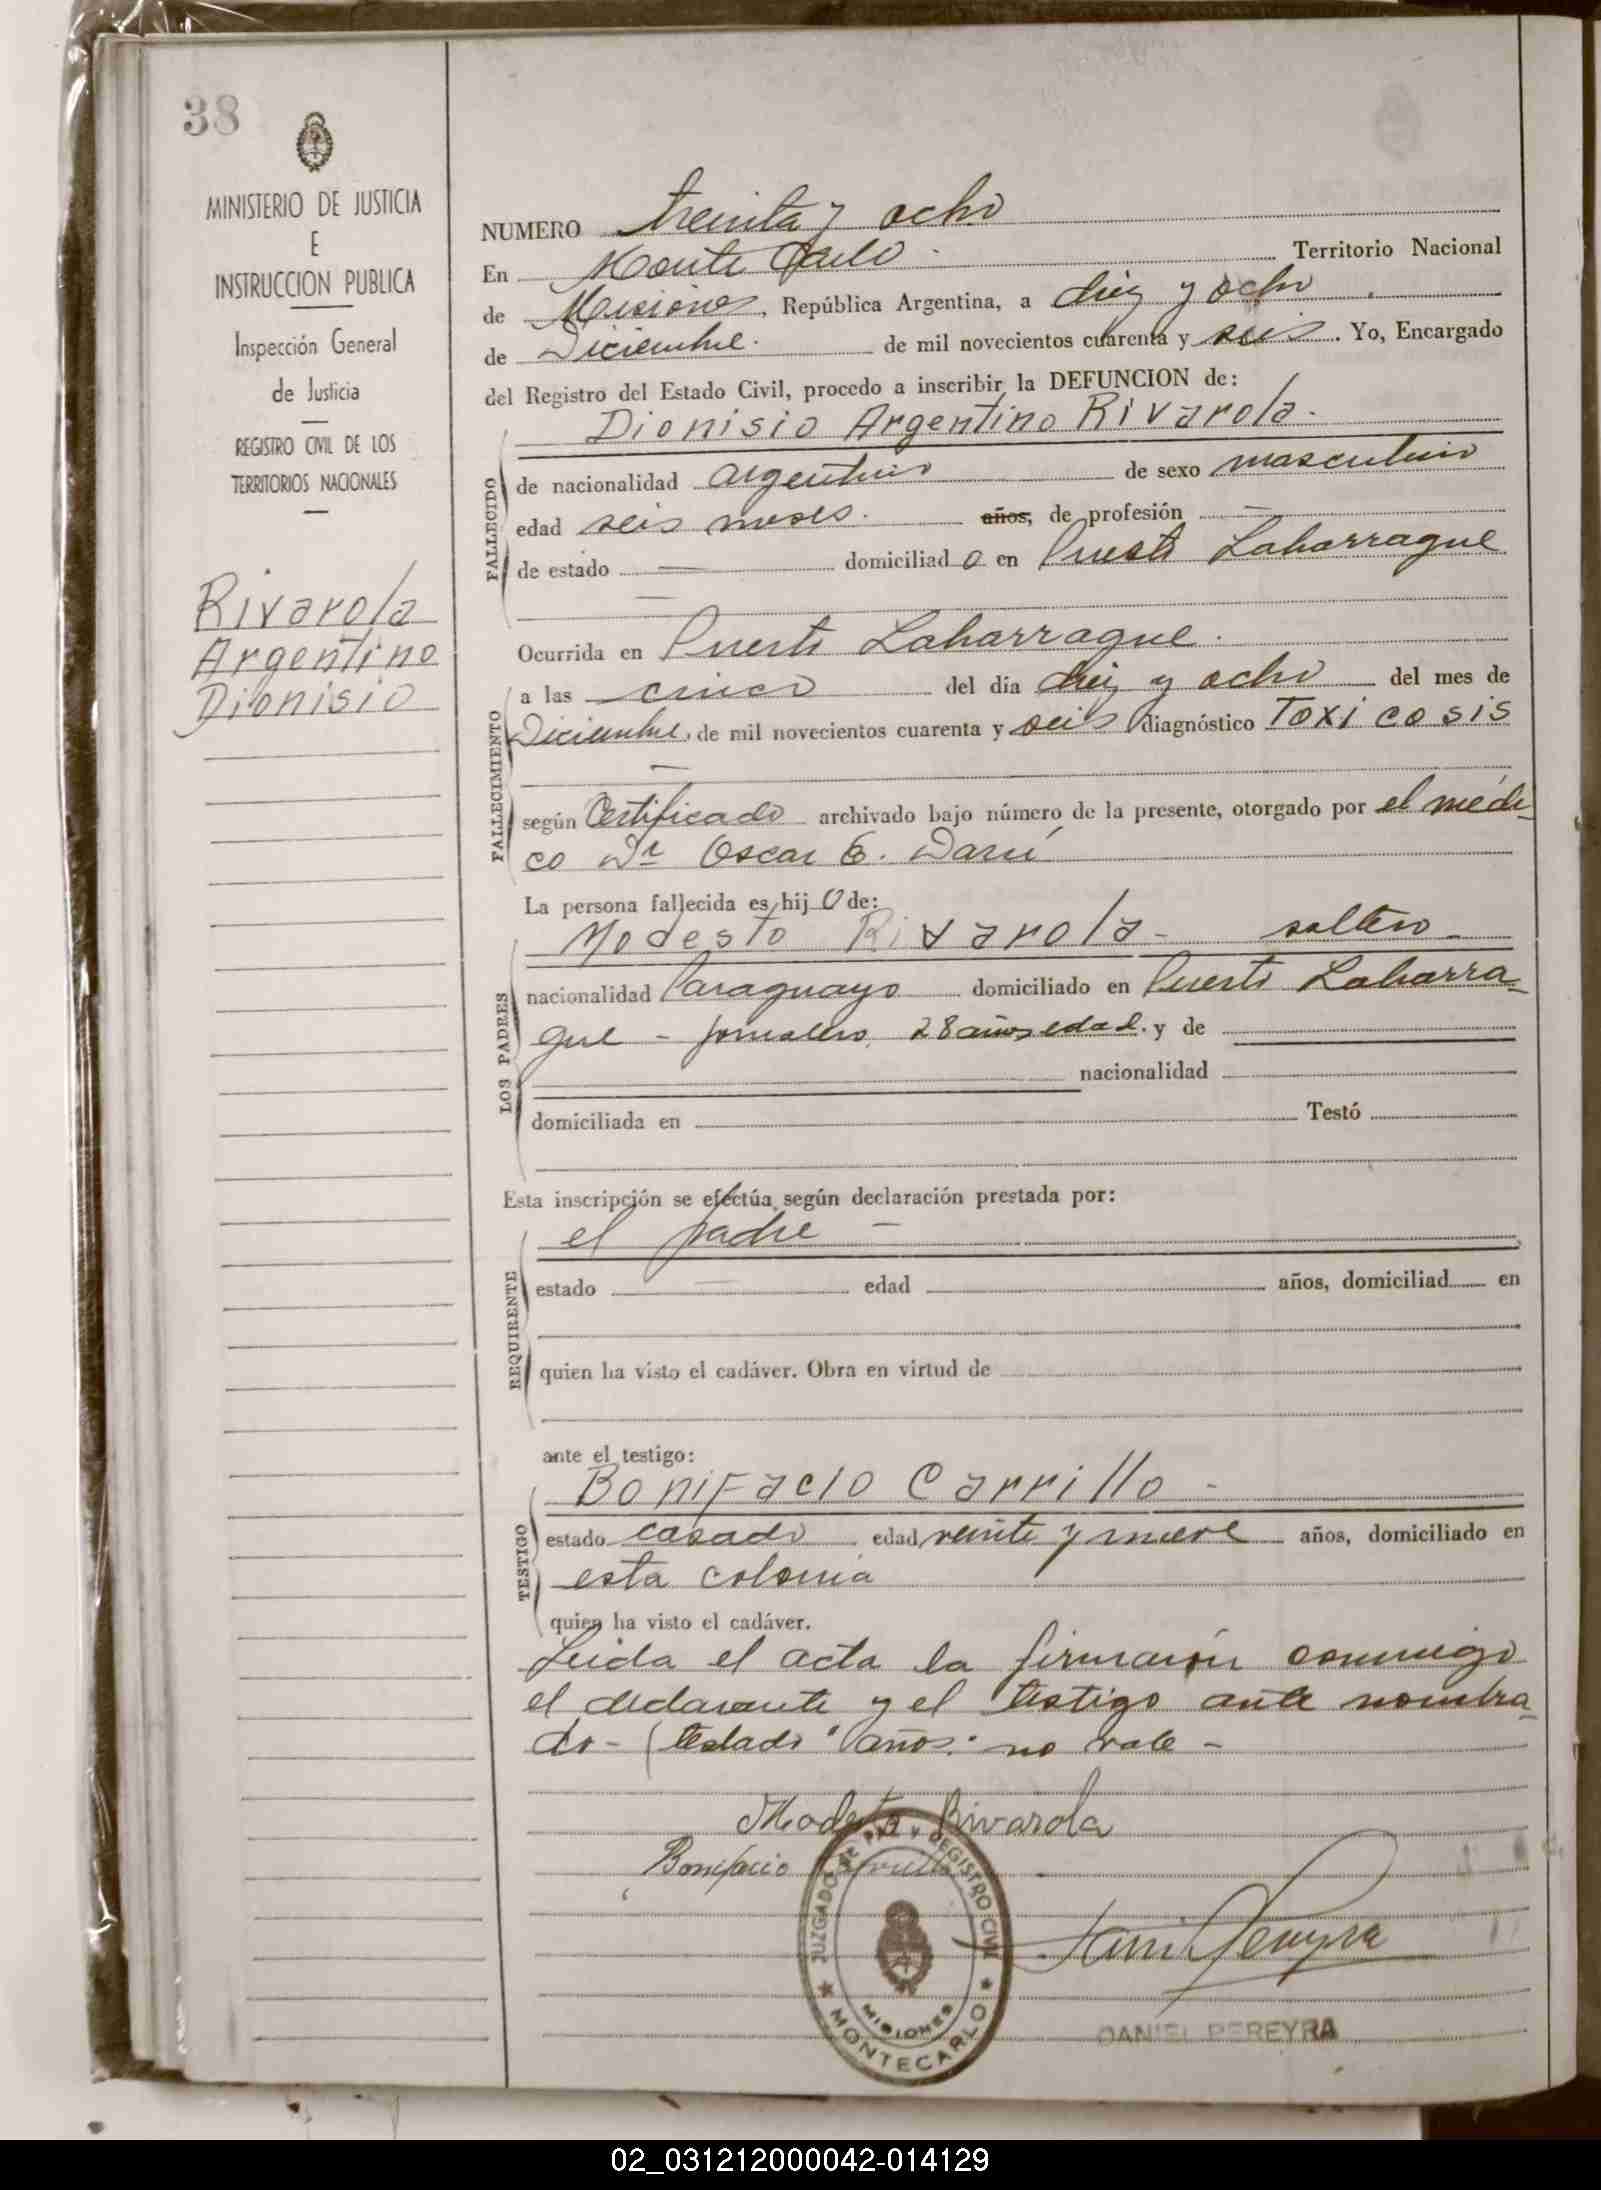 38
MINISTERIO DE JUSTICIA
E
INSTRUCCION PUBLICA
Inspección General
de Justicia
REGISTRO CIVIL DE LOS
TERRITORIOS NACIONALES
Rivarola
Argentino
Dionisio
NUMERO treinta y ocho
En Monte Carlo Territorio Nacional
de Misiones, República Argentina, a diez y ocho
de Diciembre. de mil novecientos cuarenta y seis. Yo, Encargado
del Registro del Estado Civil, procedo a inscribir la DEFUNCION de:
Dionisio Argentino Rivarola.
FALLECIDO
de nacionalidad argentino de sexo masculino
edad seis meses. años, de profesión —
de estado — domiciliado en Puerto Laharrague
—
Ocurrida en Puerto Laharrague.
FALLECIMIENTO
a las cinco del día diez y ocho del mes de
Diciembre, de mil novecientos cuarenta y seis diagnóstico Toxicosis
—
según Certificado archivado bajo número de la presente, otorgado por el médi-
co Dr Oscar E. Darú
La persona fallecida es hijo de:
LOS PADRES
Modesto Rivarola - soltero -
nacionalidad Paraguayo domiciliado en Puerto Laharra-
gue - jornalero, 28 años edad. y de
nacionalidad
domiciliada en Testó
Esta inscripción se efectúa según declaración prestada por:
REQUIRENTE
el padre —
estado — edad años, domiciliad en
quien ha visto el cadáver. Obra en virtud de
ante el testigo:
TESTIGO
Bonifacio Carrillo -
estado casado edad veinte y nueve años, domiciliado en
esta colonia
quien ha visto el cadáver.
Leida el acta la firmaron conmigo
el declarante y el testigo ante nombra-
do - (testado "años": no vale -
Modesto Rivarola
Bonifacio Carrillo
JUZGADO DE PAZ Y REGISTRO CIVIL
MISIONES
MONTECARLO
Daniel Pereyra
DANIEL PEREYRA
02_031212000042-014129